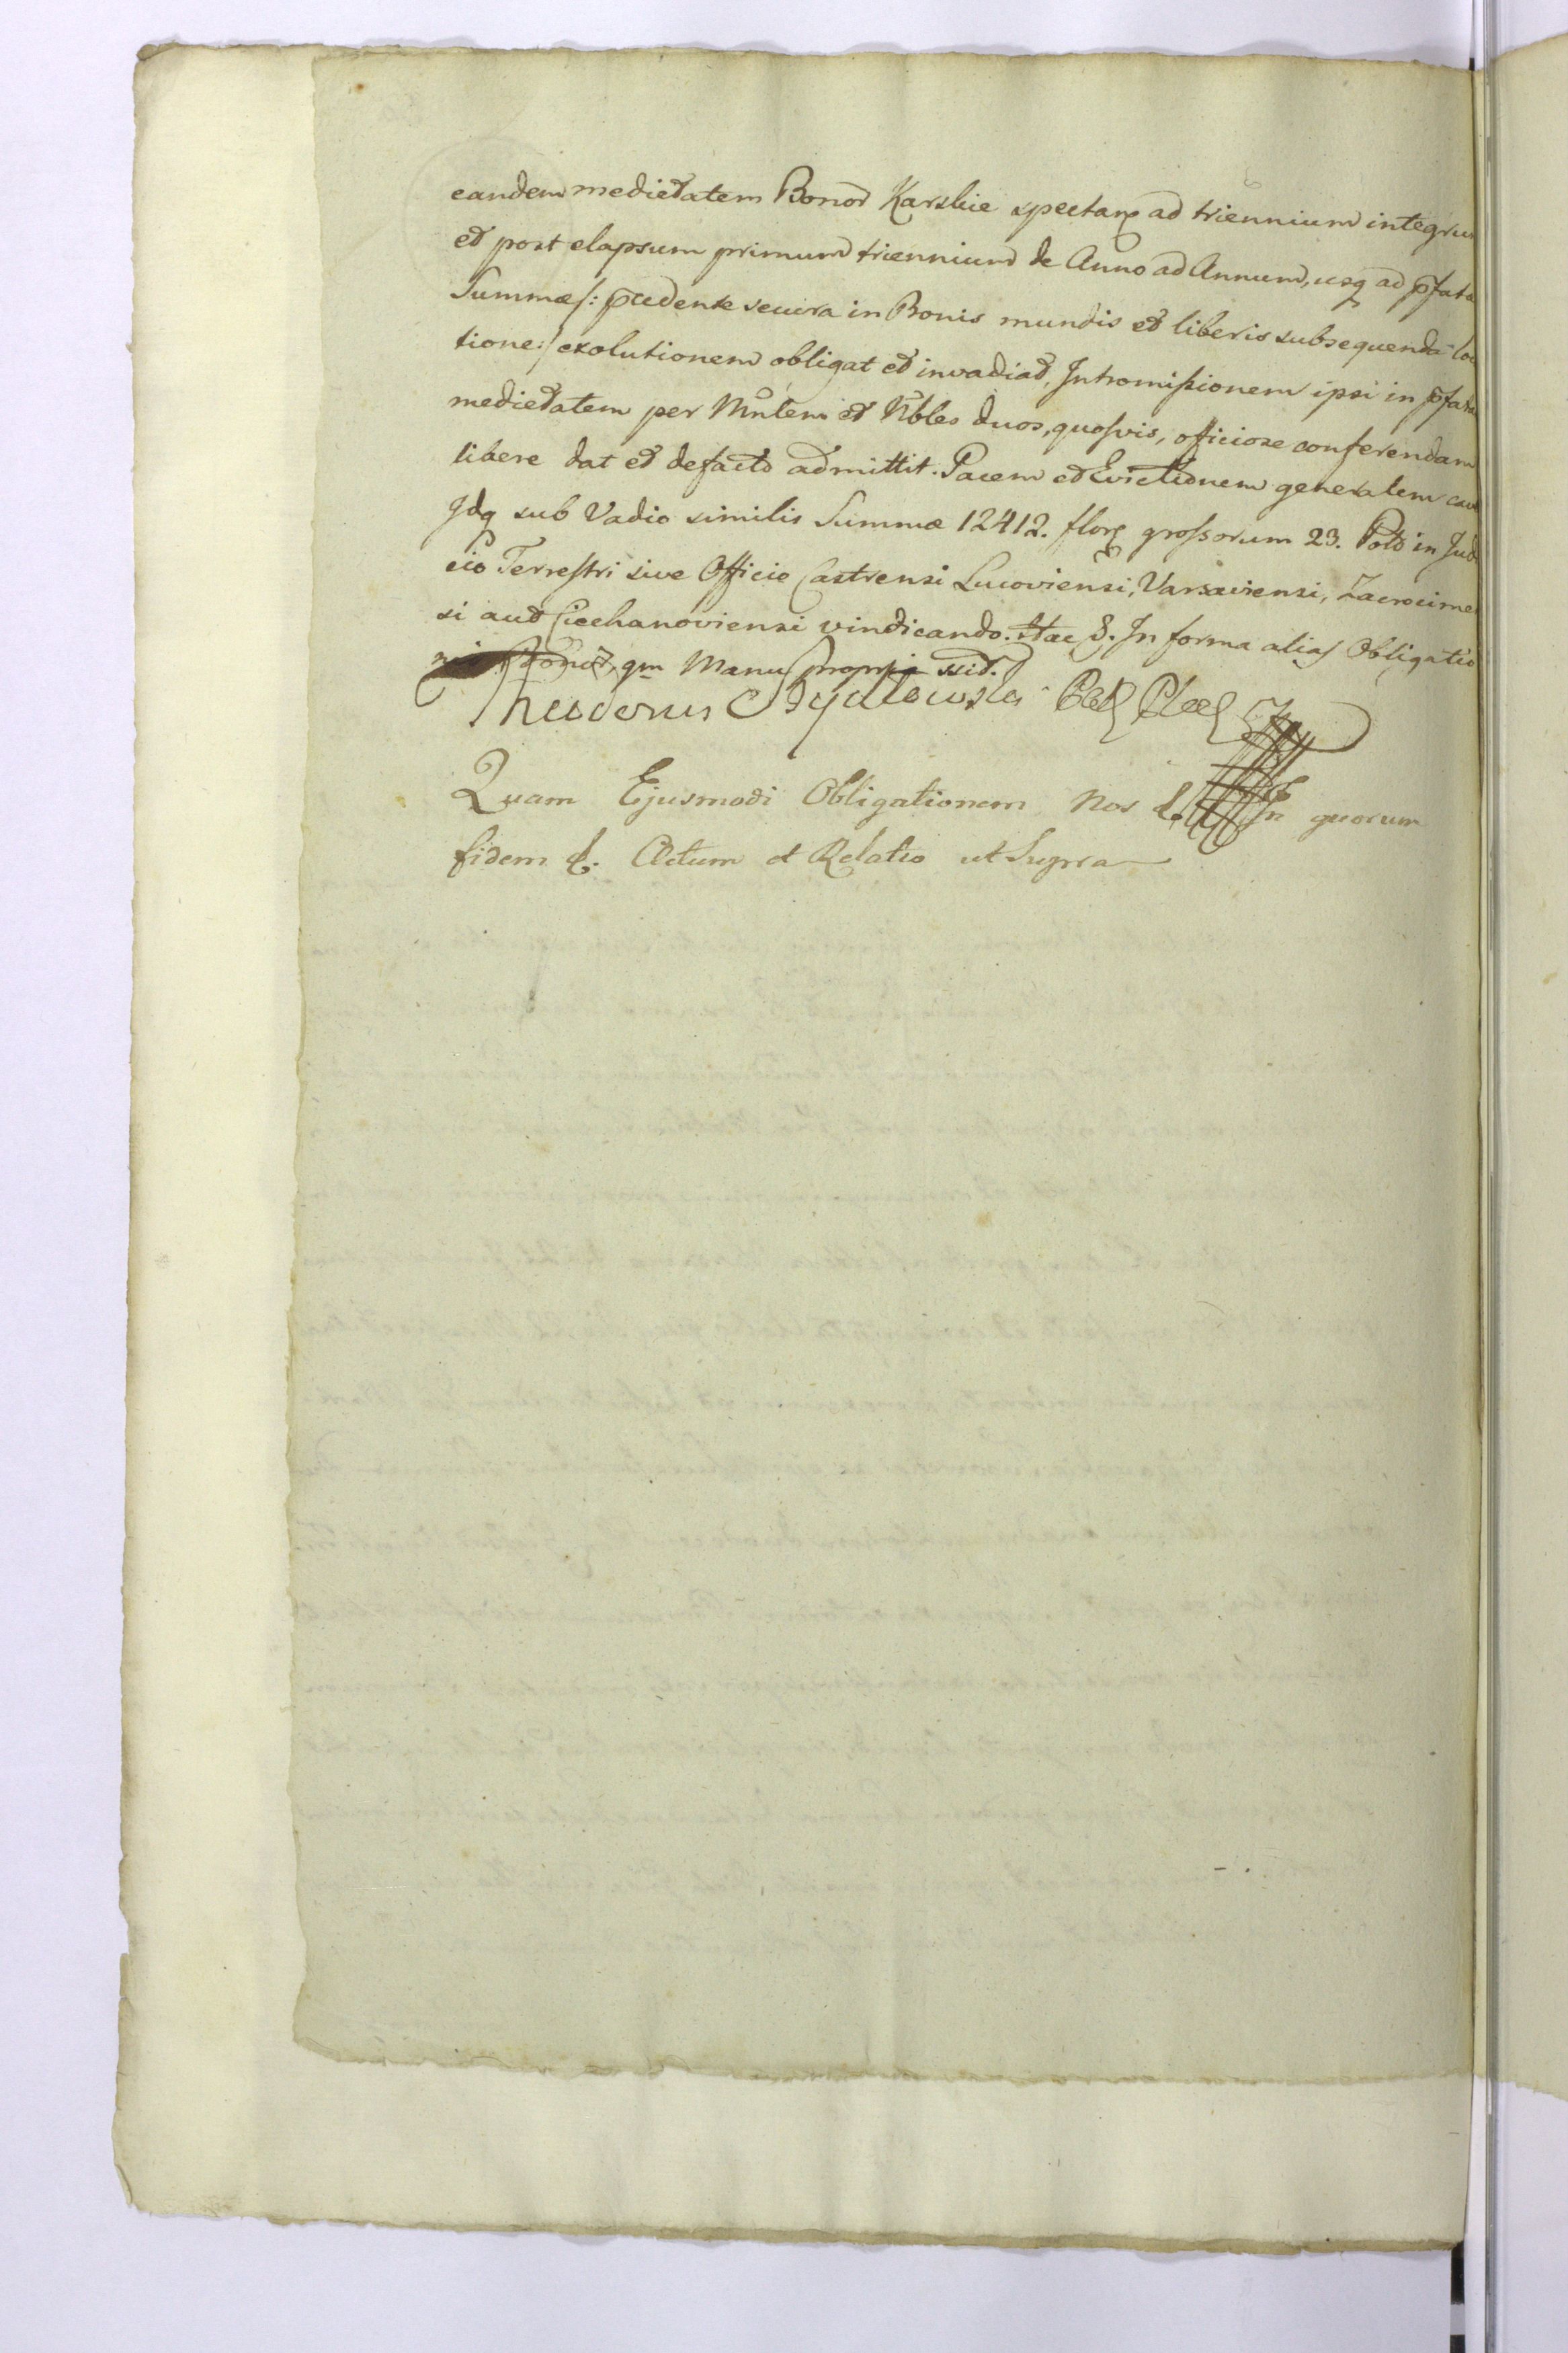 eandem medietatem Bonor Karskie spectan ad triennium integru
et post elapsum primum triennium de Anno ad Annum, usq ad pfatæ
Summæ /: pcedente secura in Bonis mundis et liberis subsequenda loca
tione :/ exolutionem obligat et invadiat, Intromissionem ipsi in pfatā
medietatem per Mntem et Nbles duos, quosvis, officiose conferendam
libere dat et defacto admittit. Pacem et Evictionem generalem cav
Idq sub Vadio similis Summæ 12412. flor grossorum 23. Polo in Jud
cio Terrestri sive Officio Castrensi Lucoviensi, Varsaviensi, Zacrocime
si aut Ciechanoviensi vindicando. Hac &. In forma alias Obligatio
qm Manu propria ssit.
Theodorus
Quam Ejusmodi Obligationem Nos &. In quorum
fidem &. Actum et Relatio ut Supra